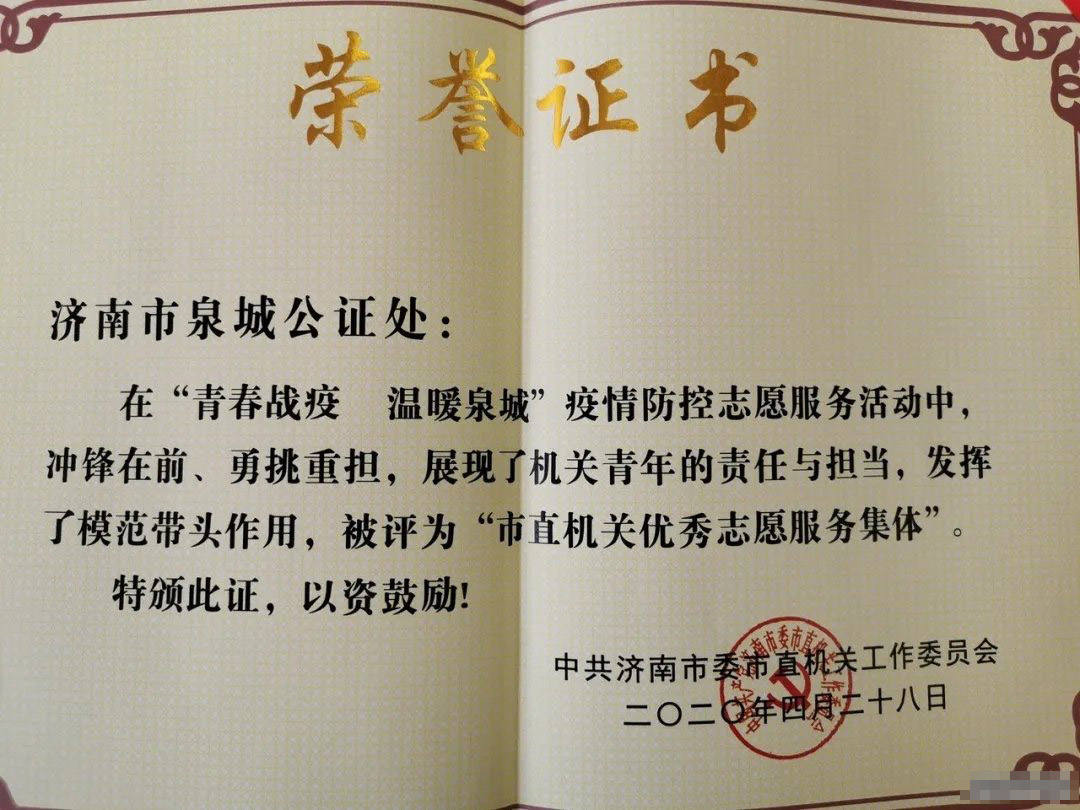 荣誉证书
济南市泉城公证处：
在“青春战疫 温暖泉城”疫情防控志愿服务活动中，
冲锋在前、勇挑重担，展现了机关青年的责任与担当，发挥
了模范带头作用，被评为“市直机关优秀志愿服务集体”。
特颁此证，以资鼓励!
中共济南市委市直机关工作委员会
二〇二〇年四月二十八日